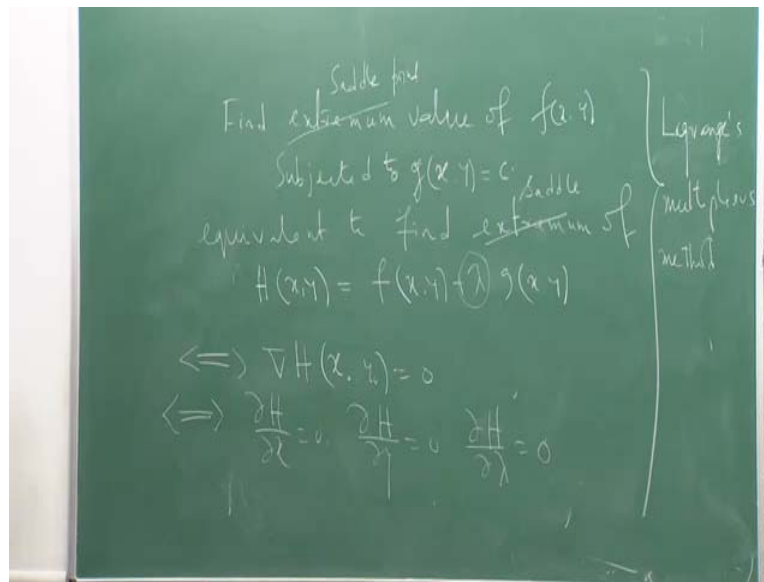 Saddle point
Find extremum value of f(x.y)
Subjected to g(x.y)=c.
saddle
equivalent to find extremum of
H(x,y) = f(x.y) - λ g(x y)
<=> ∇H(x, y) = 0
<=> ∂H/∂x = 0 ∂H/∂y = 0 ∂H/∂λ = 0
Lagrange's
multipliers
method